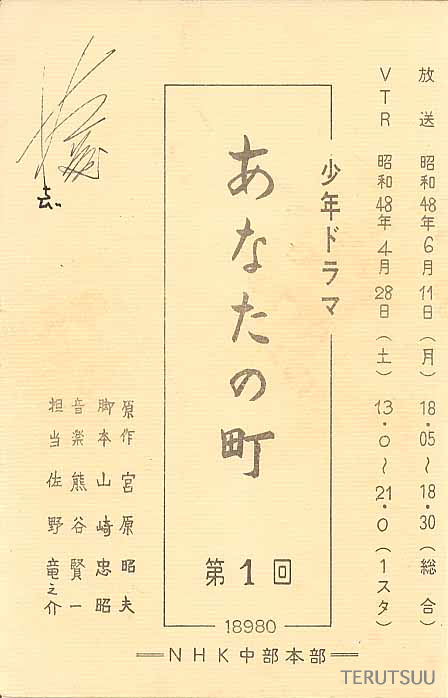 放送 昭和48年6月11日(月) 18.05〜18.30(総合)
VTR 昭和48年4月28日(土) 13.0〜21.0(1スタ)
少年ドラマ
あなたの町
第1回
18980
原作 宮原昭夫
脚本 山崎忠昭
音楽 熊谷賢一
担当 佐野竜之介
NHK中部本部
TERUTSUU